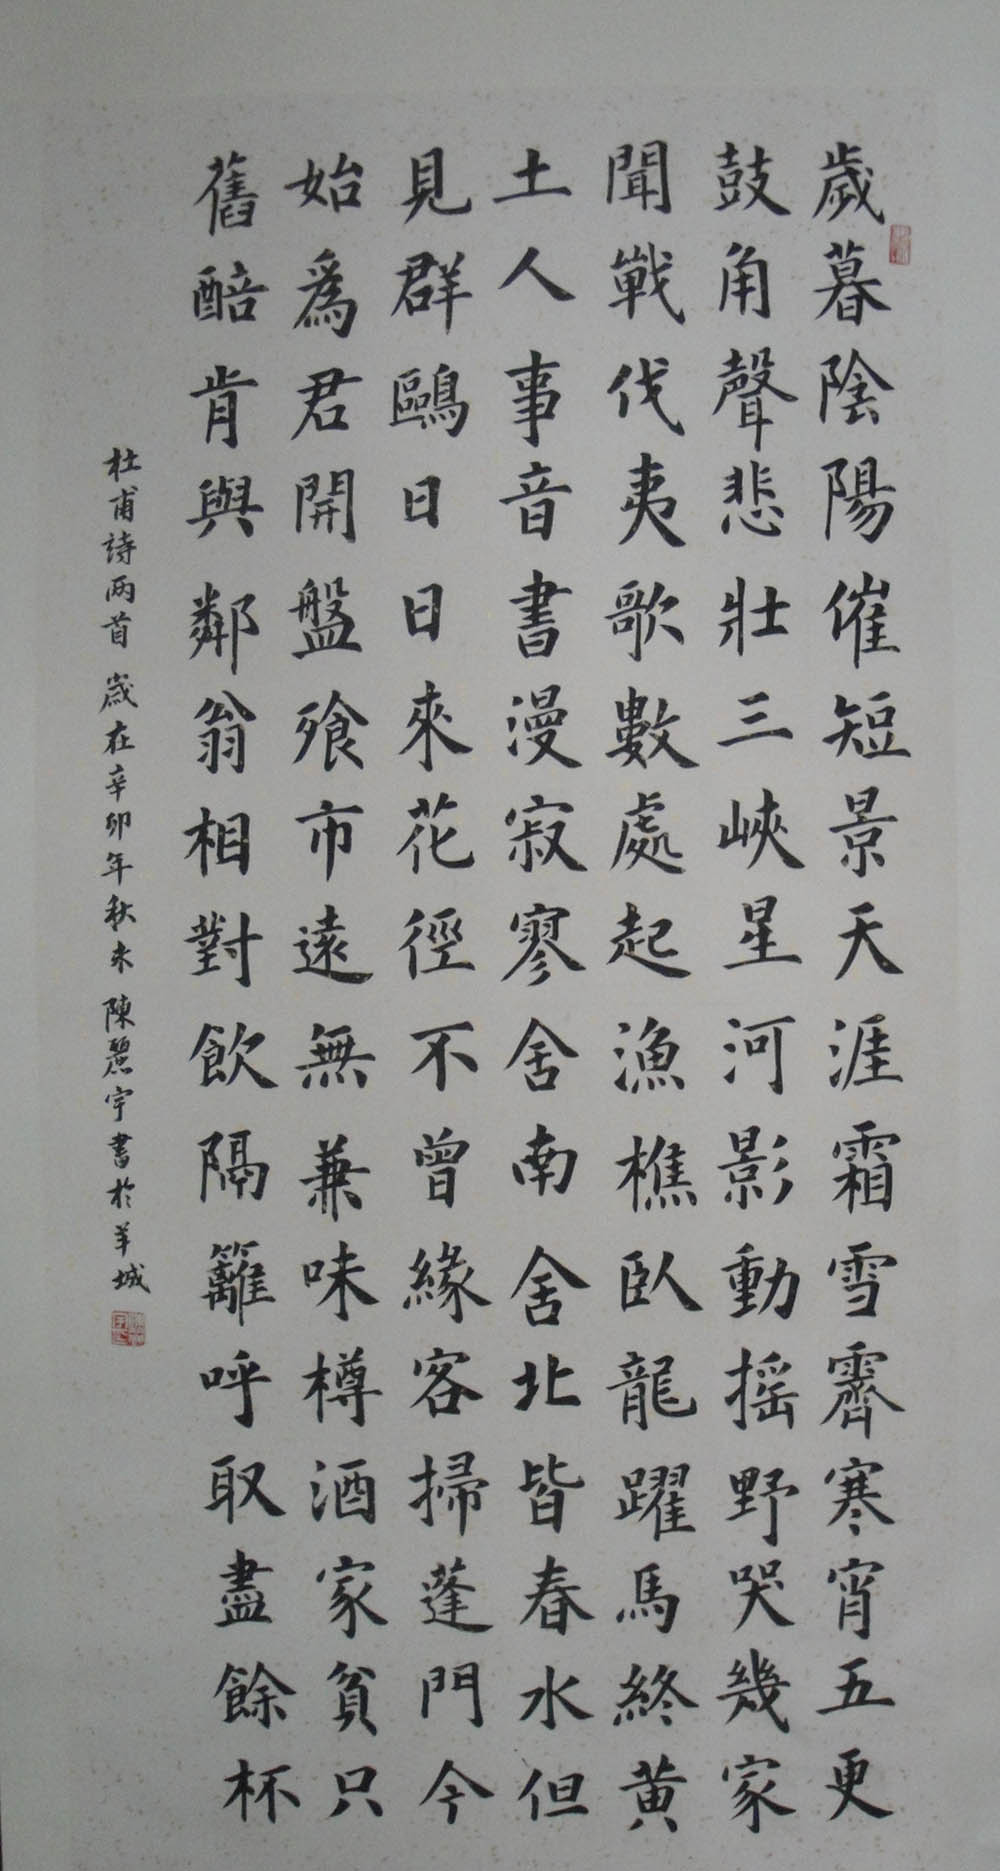 歲暮陰陽催短景天涯霜雪霽寒宵五更
鼓角聲悲壯三峽星河影動摇野哭幾家
聞戰伐夷歌數處起漁樵臥龍躍馬終黄
土人事音書漫寂寥舍南舍北皆春水但
見群鷗日日來花徑不曾緣客掃蓬門今
始爲君開盤飱市遠無兼味樽酒家貧只
舊醅肯與鄰翁相對飲隔籬呼取盡餘杯
杜甫詩两首 歲在辛卯年秋末 陳麗宇書於羊城